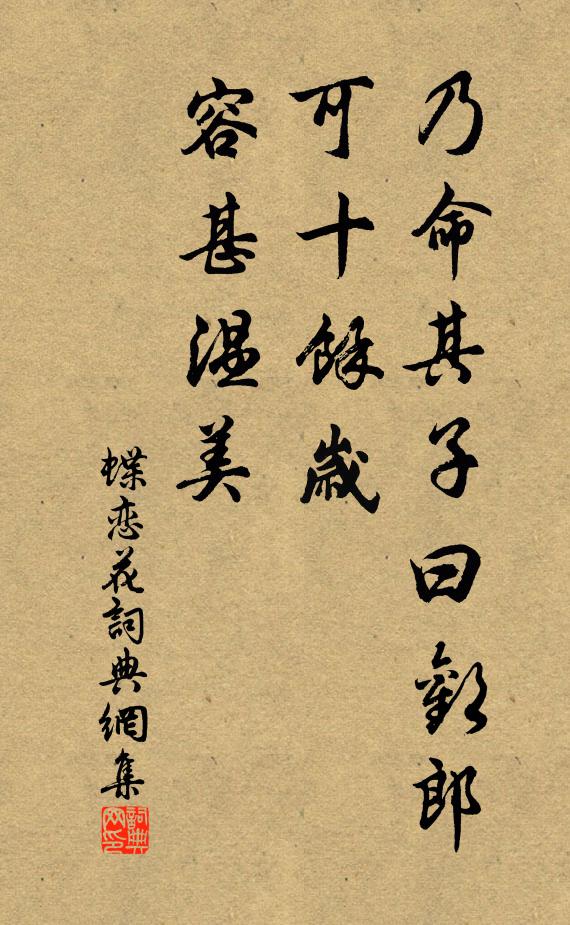 乃命其子曰歡郎
可十餘歲
容甚温美
蝶恋花詞典網集
詞典网印